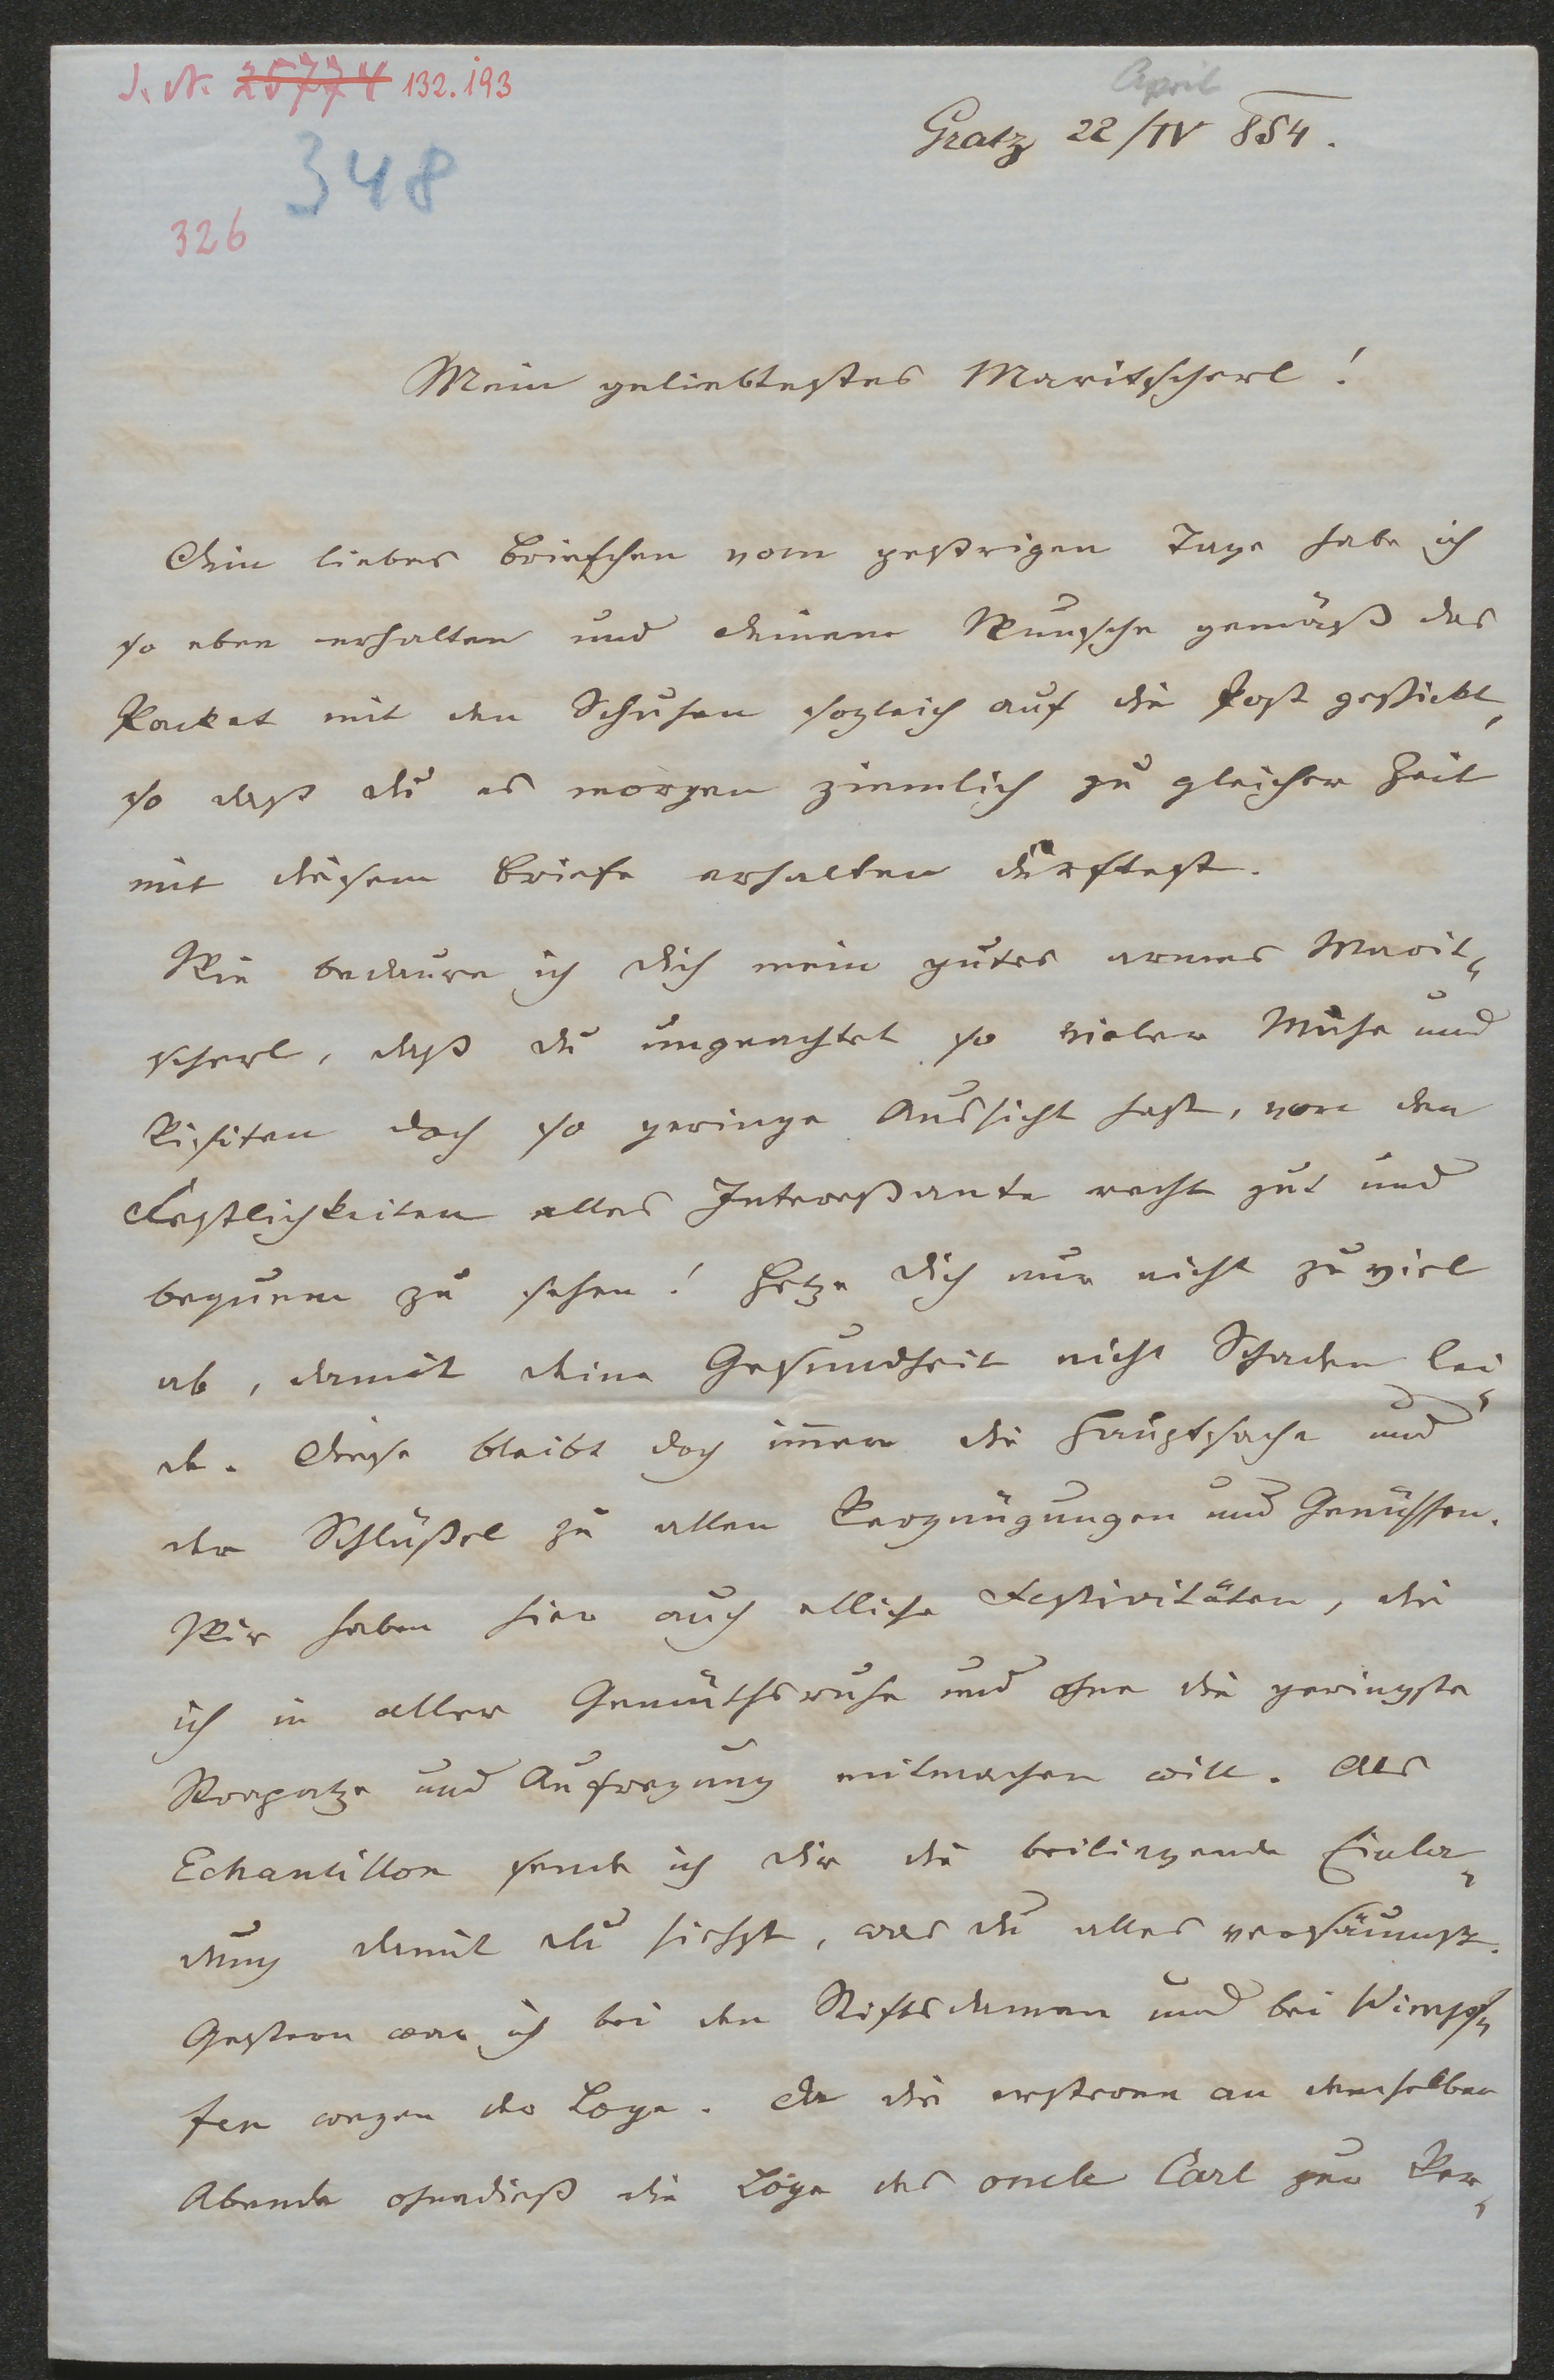 J. N. 25774 132.193
April
Gratz 22/IV 854.
348
326
Mein geliebtestes Maritscherl!
Dein liebes Briefchen vom gestrigen Tage habe ich
so eben erhalten und deinem Wunsche gemäß das
Packet mit den Schuhen sogleich auf die Post geschickt,
so daß du es morgen ziemlich zu gleicher Zeit
mit diesem Briefe erhalten dürftest.
Wie bedaure ich dich mein gutes armes Marit„
scherl, daß du ungeachtet so vieler Mühe und
Visiten doch so geringe Aussicht hast, von den
Festlichkeiten alles Interessante recht gut und
bequem zu sehen! Hetze dich nur nicht zu viel
ab, damit deine Gesundheit nicht Schaden lei„
de. Diese bleibt doch im̄er die Hauptsache und
der Schlüßel zu allen Vergnügungen und Genüssen.
Wir haben hier auch etliche Festivitäten, die
ich in aller Gemüthsruhe und ohne die geringste
Strapatze und Aufregung mitmachen will. Als
Echantillon sende ich dir die beiliegende Einla„
dung damit du siehst, was du alles versäumst.
Gestern war ich bei den Stiftsdamen und bei Wimpf„
fen wegen der Loge. Da die ersteren an demselben
Abende ohnedieß die Loge des oncle Carl zur Ver„